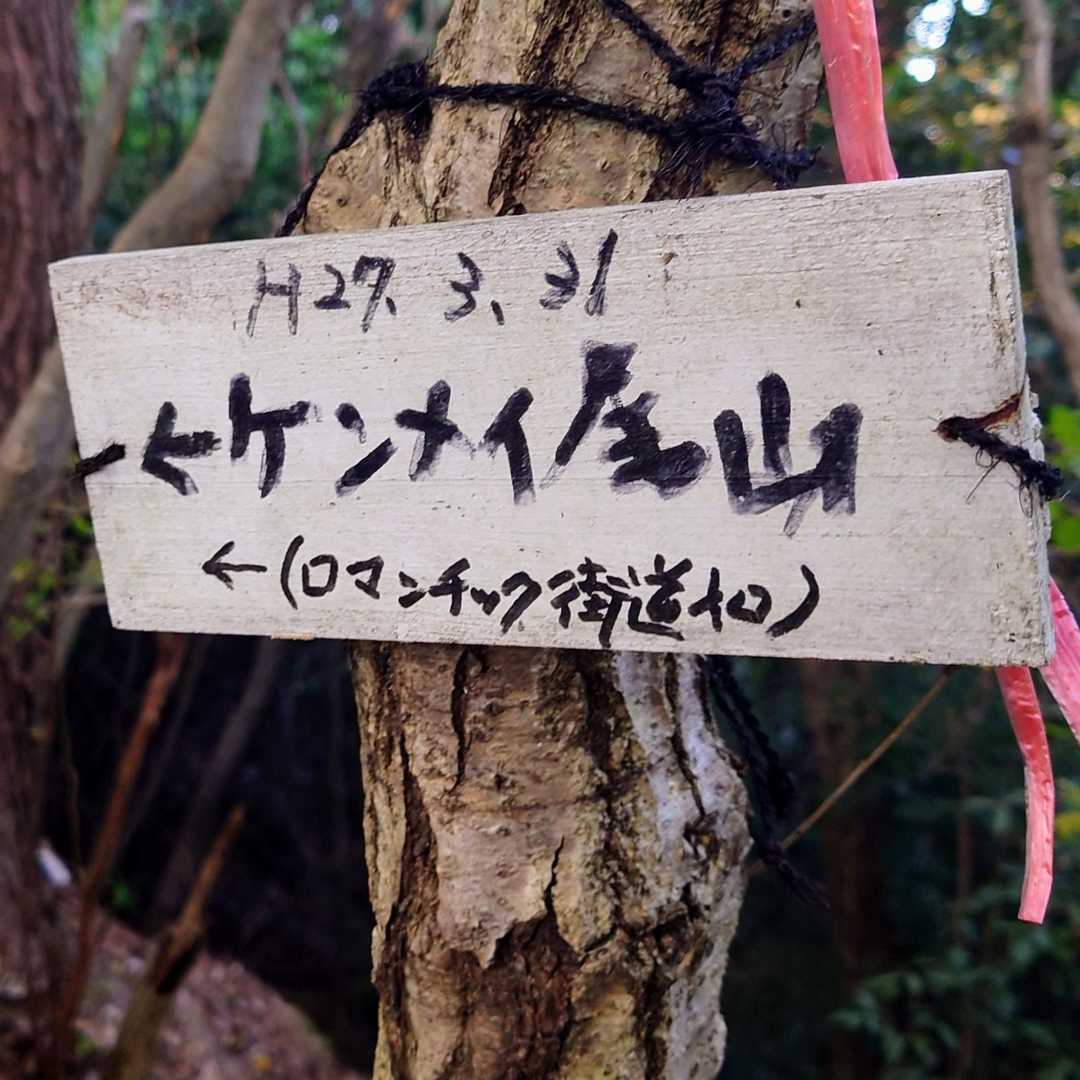 H27.3.31
←ケンメイ尾山
←(ロマンチック街道ヘ口)